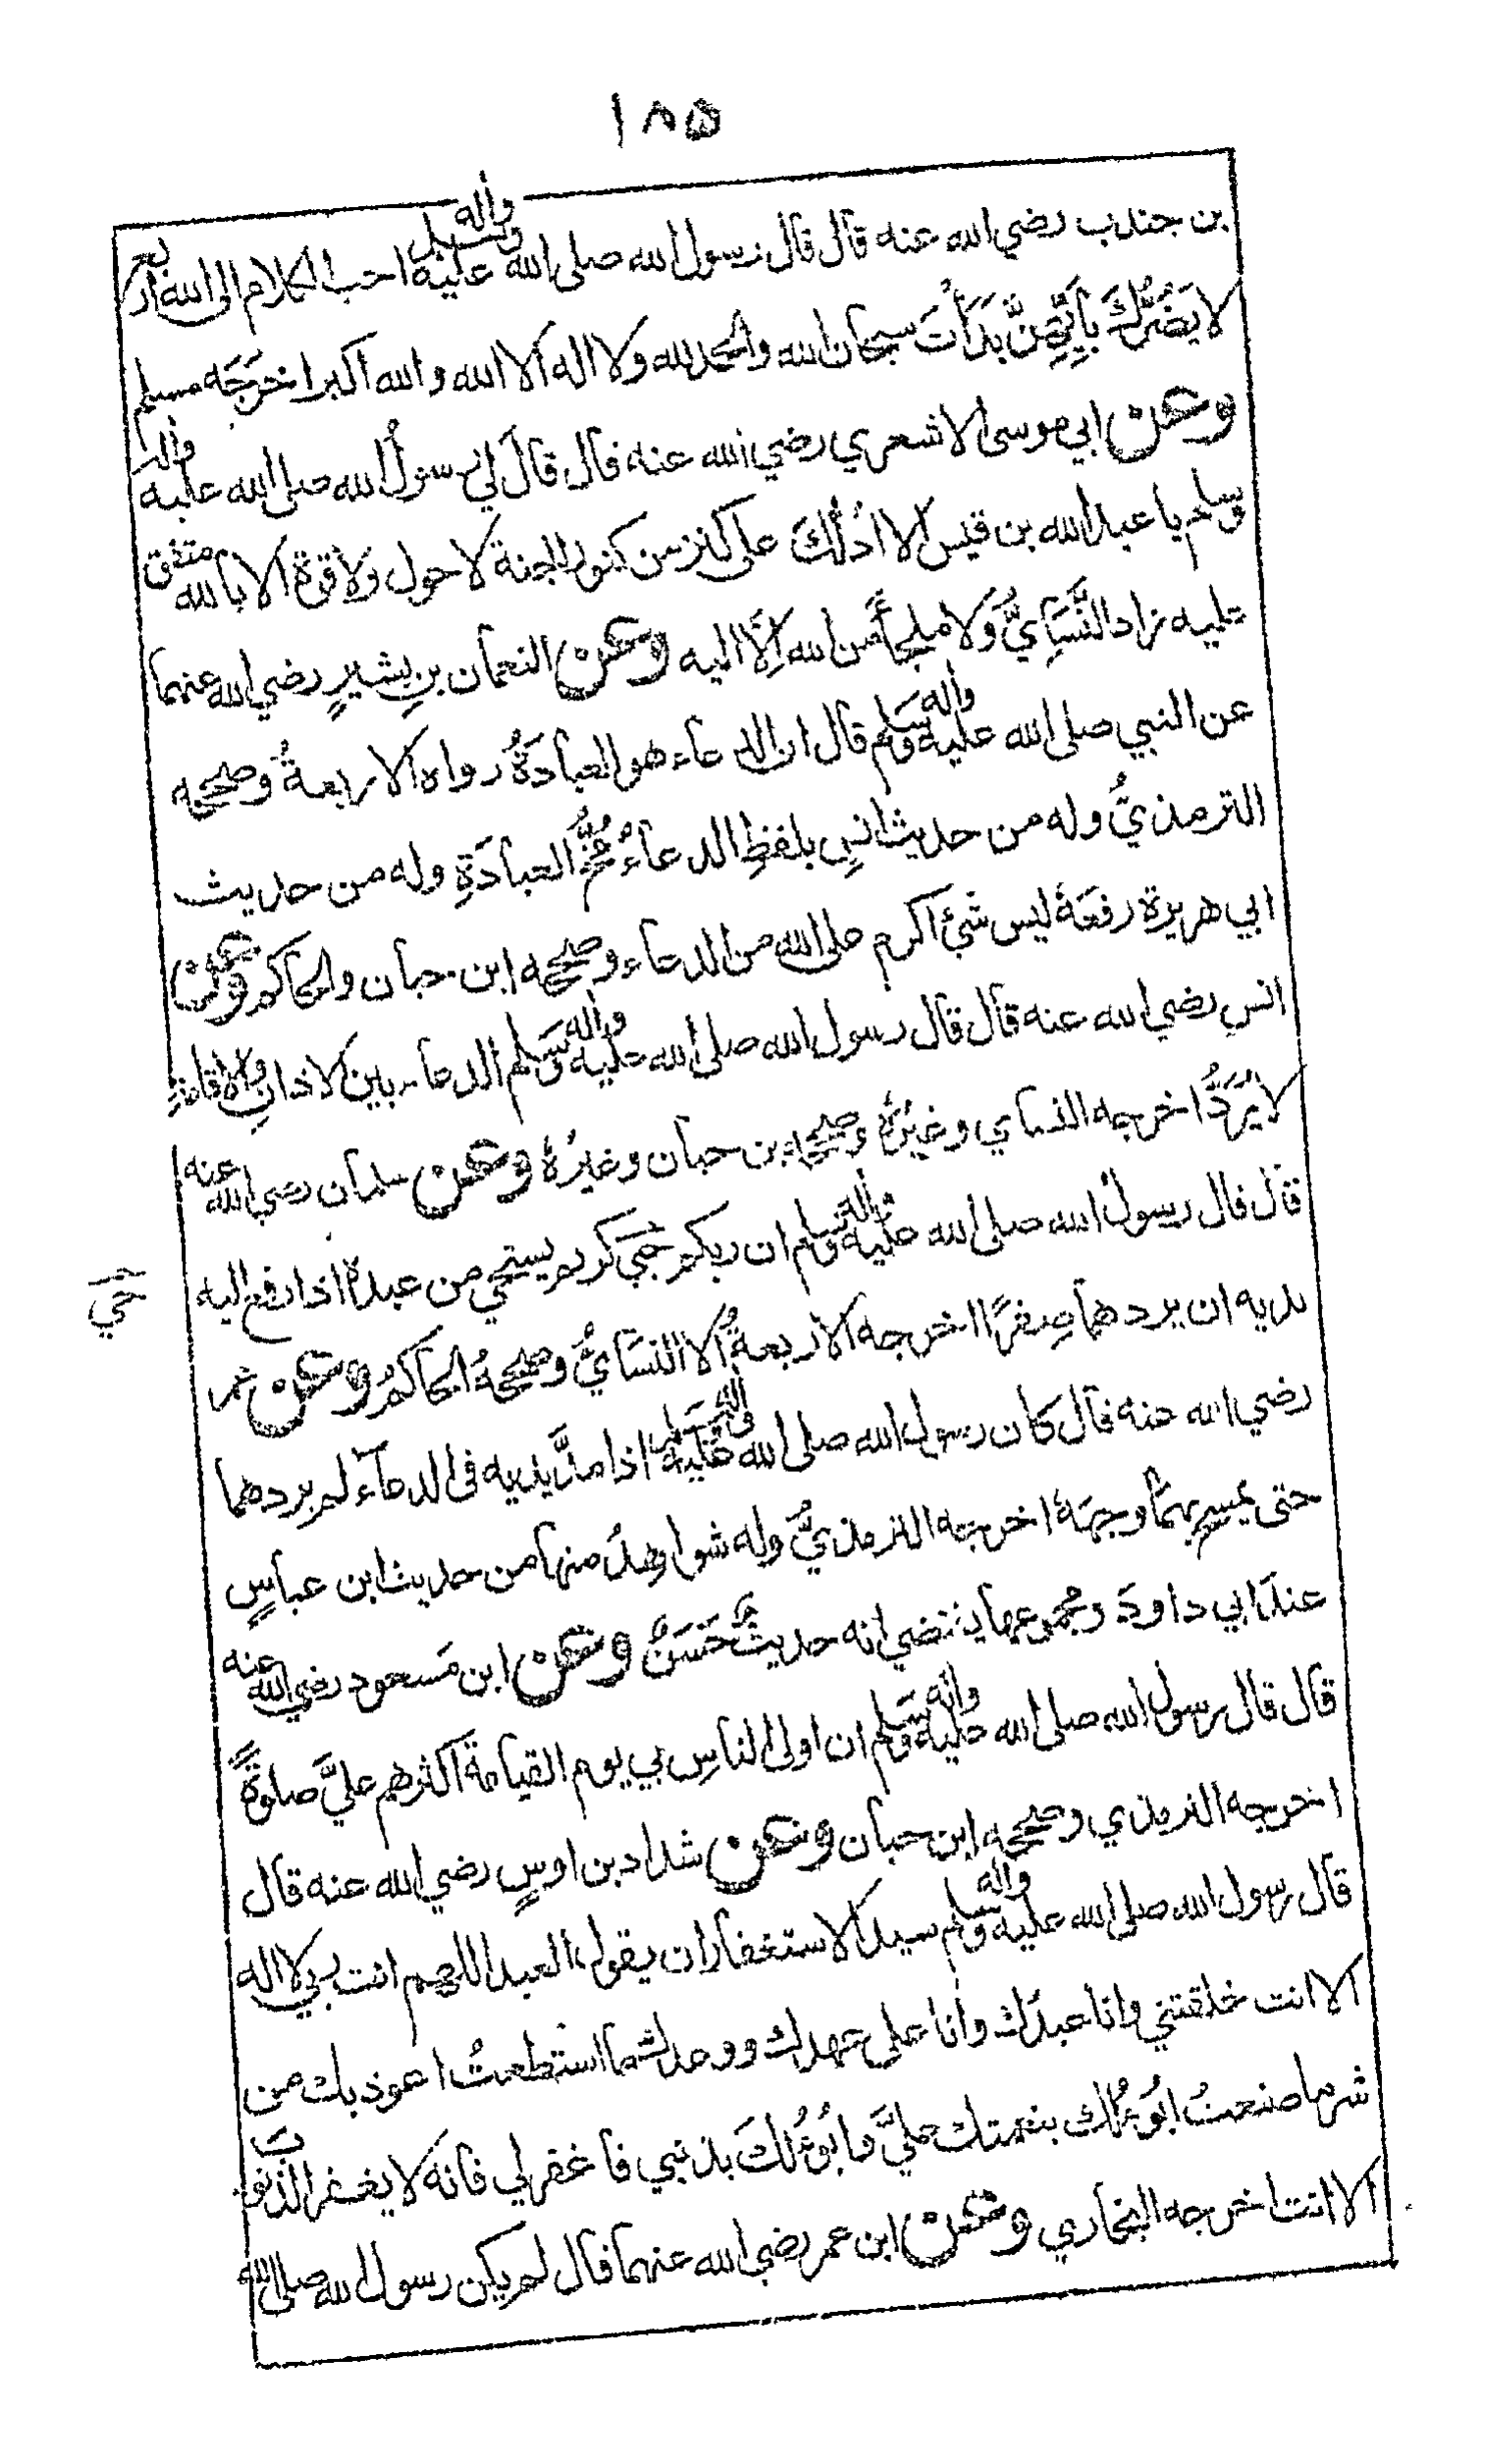 ١٨٥
بن جندب رضي الله عنه قال قال رسول الله صلى الله عليه وآله وسلم احب الكلام الى الله اربع
لا يَضُرُّكَ بِأَيِّهِنَّ بَدَأْتَ سبحان الله والحمد لله ولا اله الا الله والله اكبر اخرَجَه مسلم
وعن ابي موسى الاشعري رضي الله عنه قال قالَ لي رسولُ الله صلى الله عليه وآله
وسلم يا عبد الله بن قيس الا ادُلُّكَ على كنز من كنوز الجنة لا حول ولا قوة الا بالله متفق
عليه زاد النَّسَايُّ وَلا ملجأَ من الله اِلّا اليه وعن النعمان بنِ بشيرٍ رضي الله عنهما
عن النبي صلى الله عليه وآله وسَلم قال ان الدعاء هو العبادَةُ رواه الاربعةُ وصححه
الترمذيُّ وله من حديث انسٍ بلفظِ الدعاءُ مُخُّ العبادَةِ وله من حديث
ابي هريرة رفعَهُ ليس شئ اكرم على الله من الدعاء وصححه ابن حبان والحاكم وعن
انس رضي الله عنه قال قال رسول الله صلى الله عليه وآله وسَلم الدعاء بين الاذانِ والاقامةِ
لا يُرَدُّ اخرجه النساي وغيرُهُ وصححه ابن حبان وغيرُهُ وعن سلمان رضي الله عنه
قال قال رسولُ الله صلى الله عليه وآله وسلم ان ربكم حَيي كريم يستحي من عبده اذا رفع اليه
حيي
يديه ان يردهما صِفرًا اخرجه الاربعةُ الا النسَايُّ وصححهُ الحاكمُ وعن عمر
رضي الله عنه قال كان رسول الله صلى الله عليه وآله وسلم اذا مدَّ يديه فى الدعآء لم يردهما
حتى يمسح بهما وجهَهُ اخرجه الترمذيُّ وله شواهدُ منها من حديث ابن عباسٍ
عندَ ابي داودَ ومجموعها يقتضي انه حديثٌ حَسَنٌ وعن ابن مَسعود رضي الله عنه
قال قال رسول الله صلى الله عليه وآله وسَلم ان اولى الناسِ بي يوم القيامة اكثرهم عليَّ صلوةً
اخرجه الترمذي وصححه ابن حبان وعن شداد بن اوسٍ رضي الله عنه قال
قال رسول الله صلى الله عليه وآله وسلم سيد الاستغفار ان يقول العبد اللهم انت ربي لا اله
الا انت خلقتني وانا عبدُك وانا على عهدك ووعدك ما استطعتُ اعوذ بك من
شر ما صنعتُ ابُوءُ لك بنعمتك عليَّ وابُوءُ لكَ بذنبي فاغفر لي فانه لا يغفر الذنوبَ
الا انت اخرجه البخاري وعن ابن عمر رضي الله عنهما قال لم يكن رسول الله صلى الله